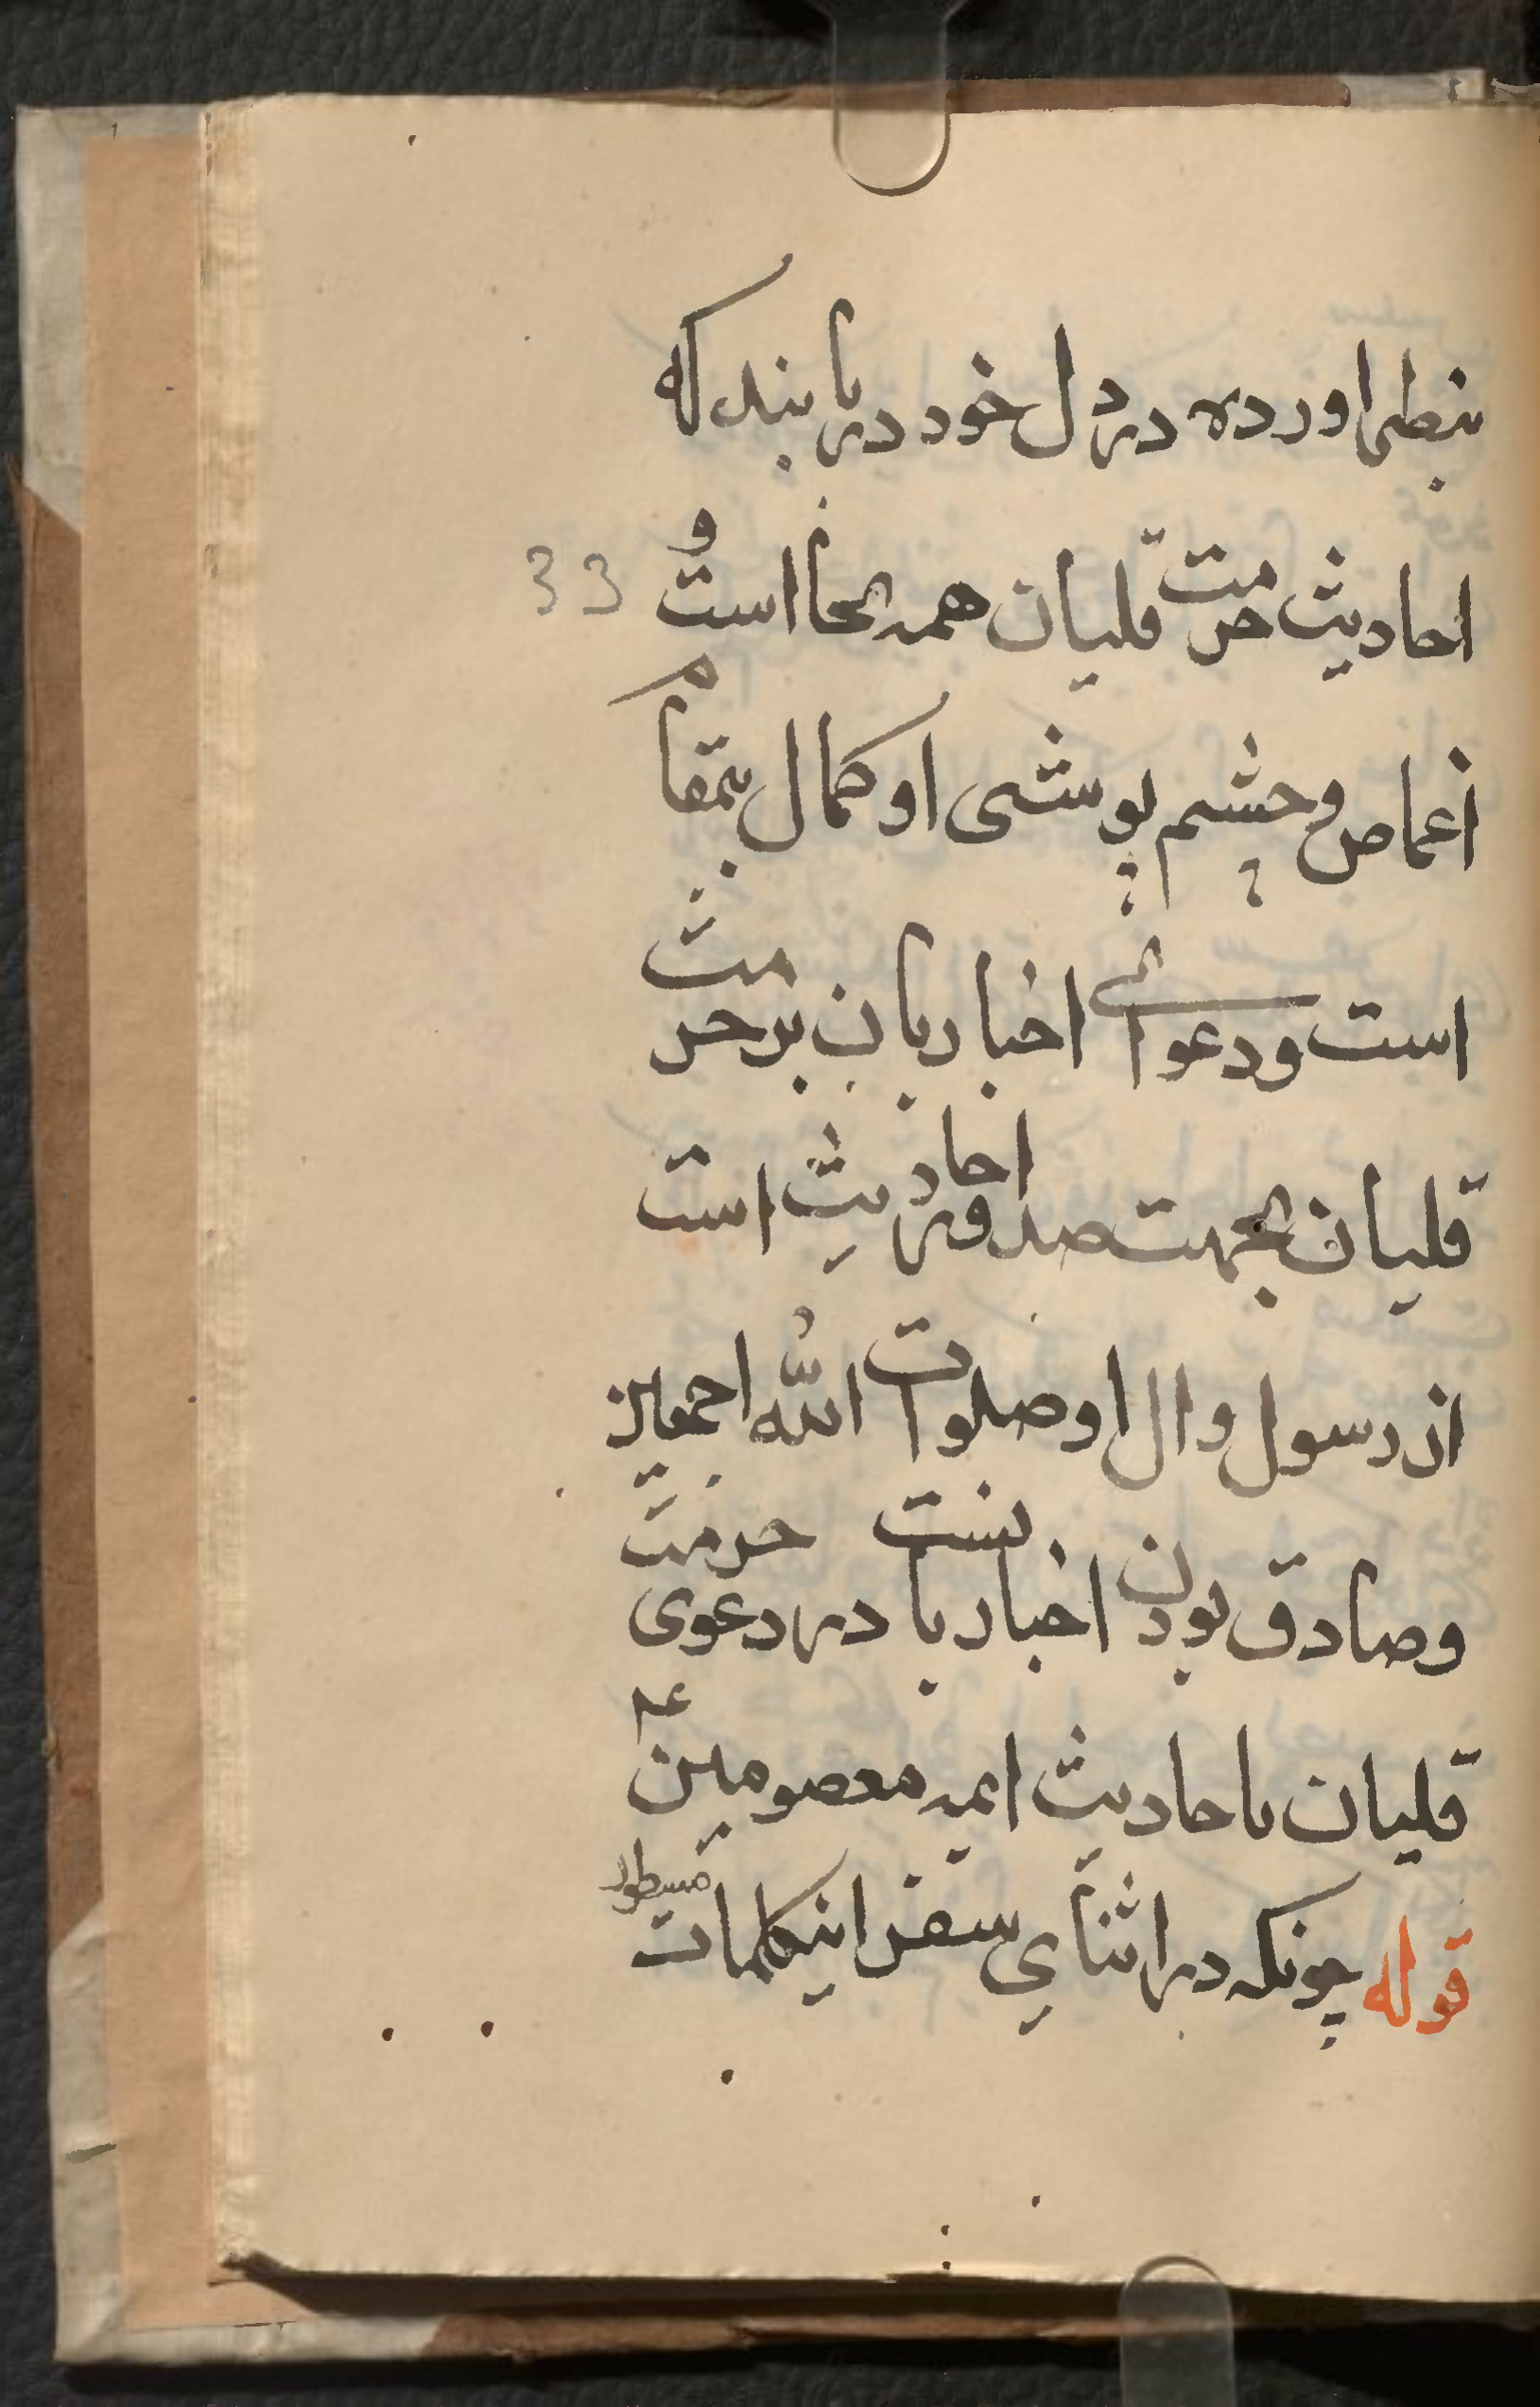 بنظر اورده در دل خود دریابند که
احادیث حرمت قلیان همه بجا است و
33
اغماض و چشم پوشی او کمال بیمقام
است و دعوای اخباریان بر حرمت
قلیان بجهت صدور احادیث است
از رسول و ال او صلوات الله اجمعین
و صادق بودن نسبت اخباریا در دعوی حرمت
قلیان باحادیث ائمه معصومین عم
قوله چونکه در اثنای سفر اینکلمات مسطور